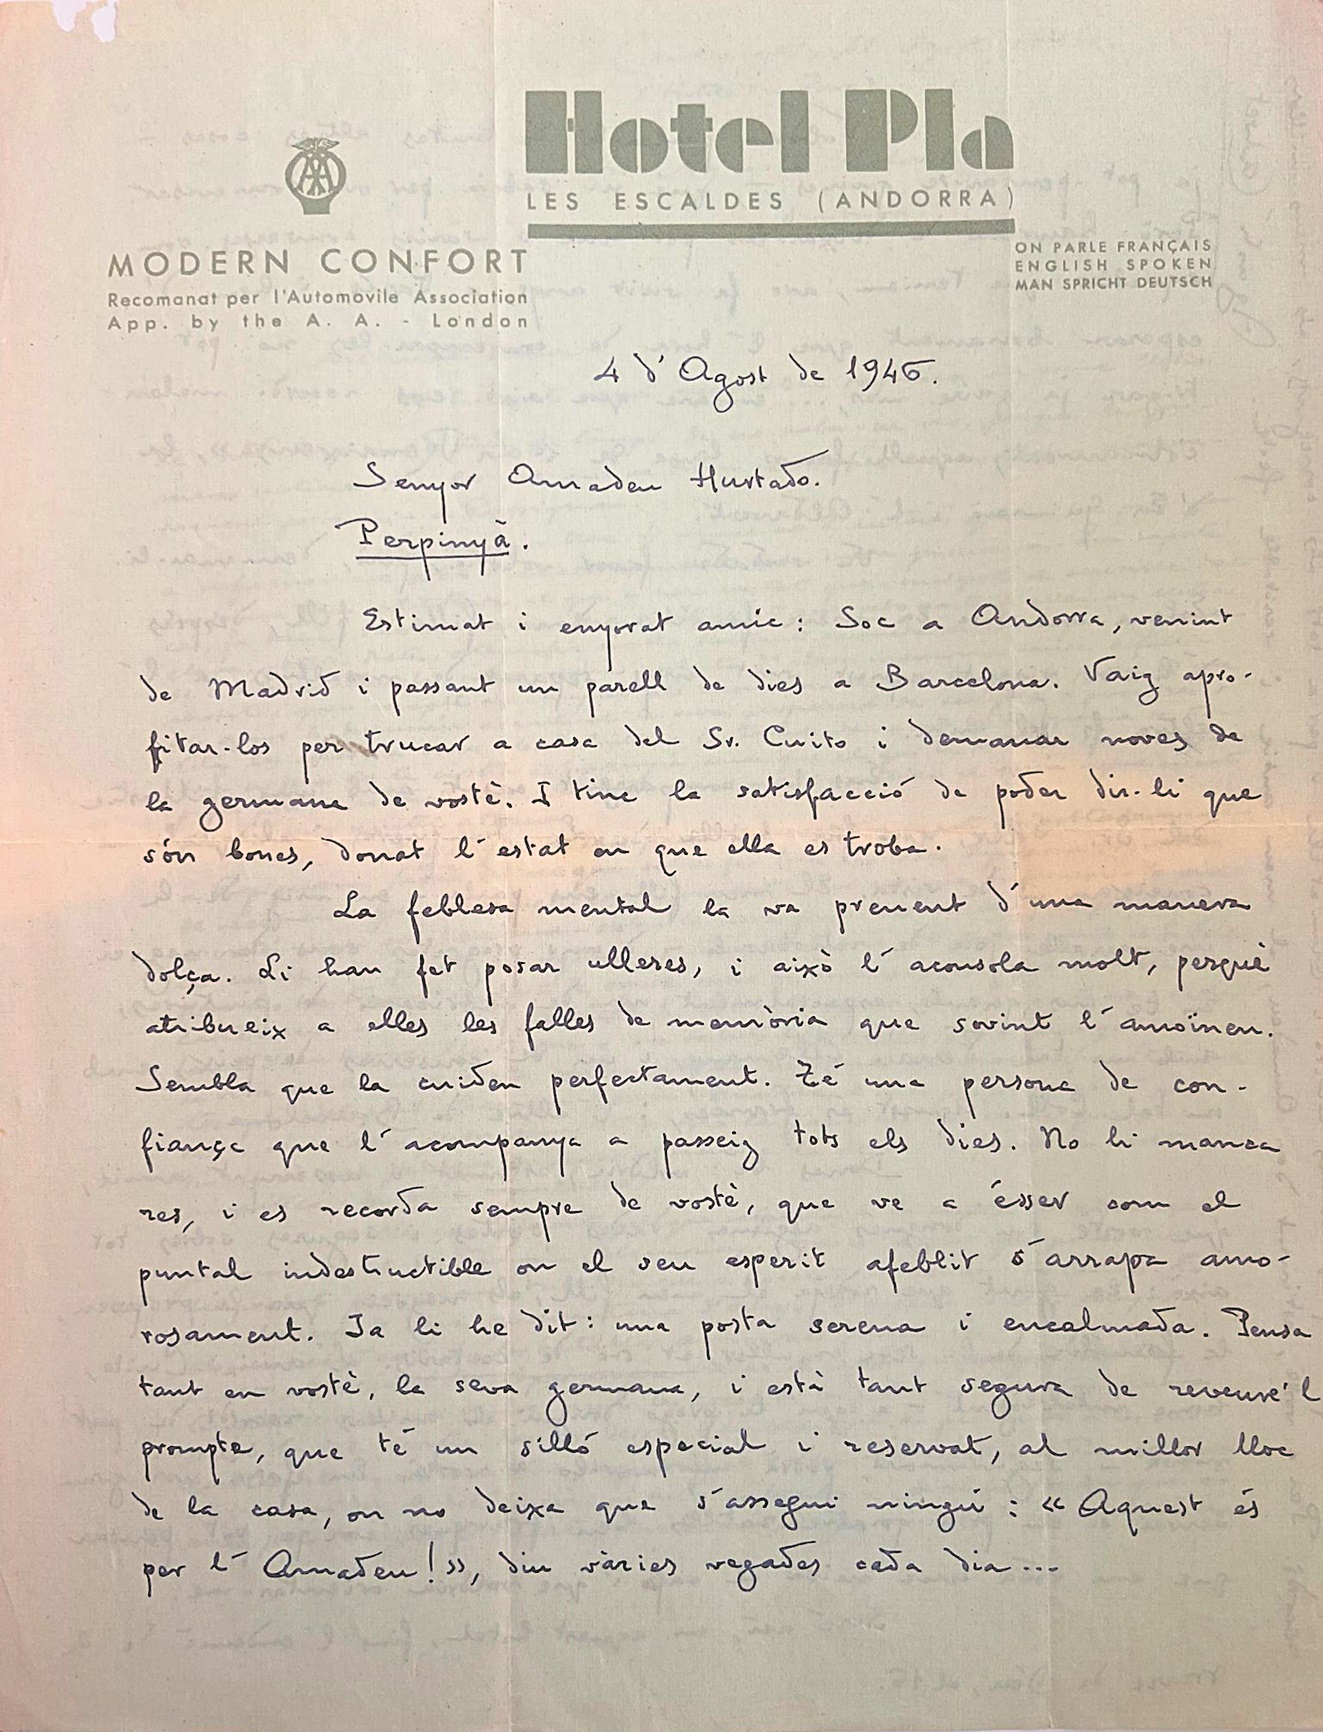 Hotel Pla
LES ESCALDES (ANDORRA)
MODERN CONFORT
Recomanat per l'Automovile Association
App. by the A. A. - London
ON PARLE FRANÇAIS
ENGLISH SPOKEN
MAN SPRICHT DEUTSCH
4 d'Agost de 1946.
Senyor Amadeu Hurtado.
Perpinyà.
Estimat i enyorat amic: Soc a Andorra, venint
de Madrid i passant un parell de dies a Barcelona. Vaig apro-
fitar-los per trucar a casa del Sr. Cuito i demanar noves de
la germana de vostè. I tinc la satisfacció de poder dir-li que
són bones, donat l'estat en que ella es troba.
La feblesa mental la va prenent d'una manera
dolça. Li han fet posar ulleres, i això l'aconsola molt, perquè
atribueix a elles les falles de memòria que sovint l'amoïnen.
Sembla que la cuiden perfectament. Té una persona de con-
fiança que l'acompanya a passeig tots els dies. No li manca
res, i es recorda sempre de vostè, que ve a ésser com el
puntal indestructible on el seu esperit afeblit s'arrapa amo-
rosament. Ja li he dit: una posta serena i encalmada. Pensa
tant en vostè, la seva germana, i està tant segura de reveure'l
prompte, que té un silló especial i reservat, al millor lloc
de la casa, on no deixa que s'assegui ningú: «Aquest és
per l'Amadeu!», diu vàries vegades cada dia...